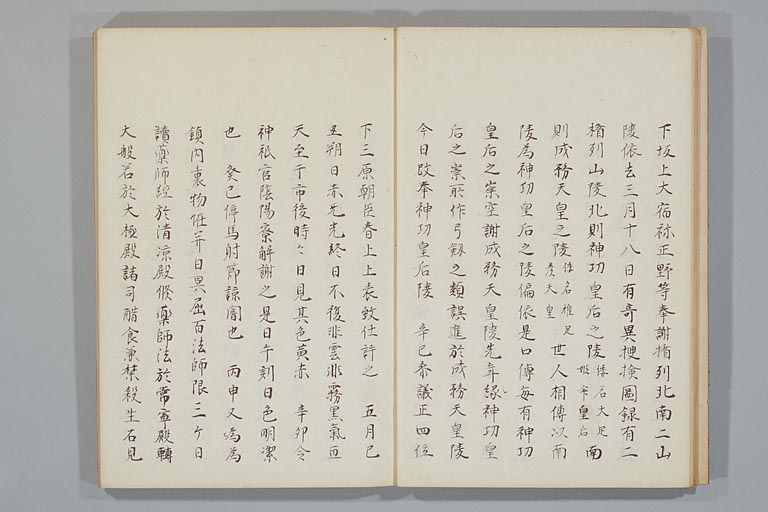 下坂上大宿祢正野等奉謝楯列北南二山
陵依去三月十八日有奇異捜撿圖録有二
楯列山陵北則神功皇后之陵倭名大足姫命皇后南
則成務天皇之陵倭名稚足彦天皇世人相傳以南
陵為神功皇后之陵偏依是口傳毎有神功
皇后之祟空謝成務天皇陵先年縁神功皇
后之祟所作弓釼之類誤進於成務天皇陵
今日改奉神功皇后陵　辛巳叅議正四位
下三原朝臣春上上表致仕許之　五月己
丑朔日赤无光終日不復非雲非霧黒氣亘
天至于市後時々日見其色黄赤　辛卯令
神祇官陰陽寮解謝之是日午刻日色明潔
也　癸巳停馬射節諒闇也　丙申又為為
鎮内裏物恠并日異屈百法師限三ケ日
讀藥師經於清凉殿修藥師法於常寧殿轉
大般若於大極殿諸司醋食兼禁殺生石見